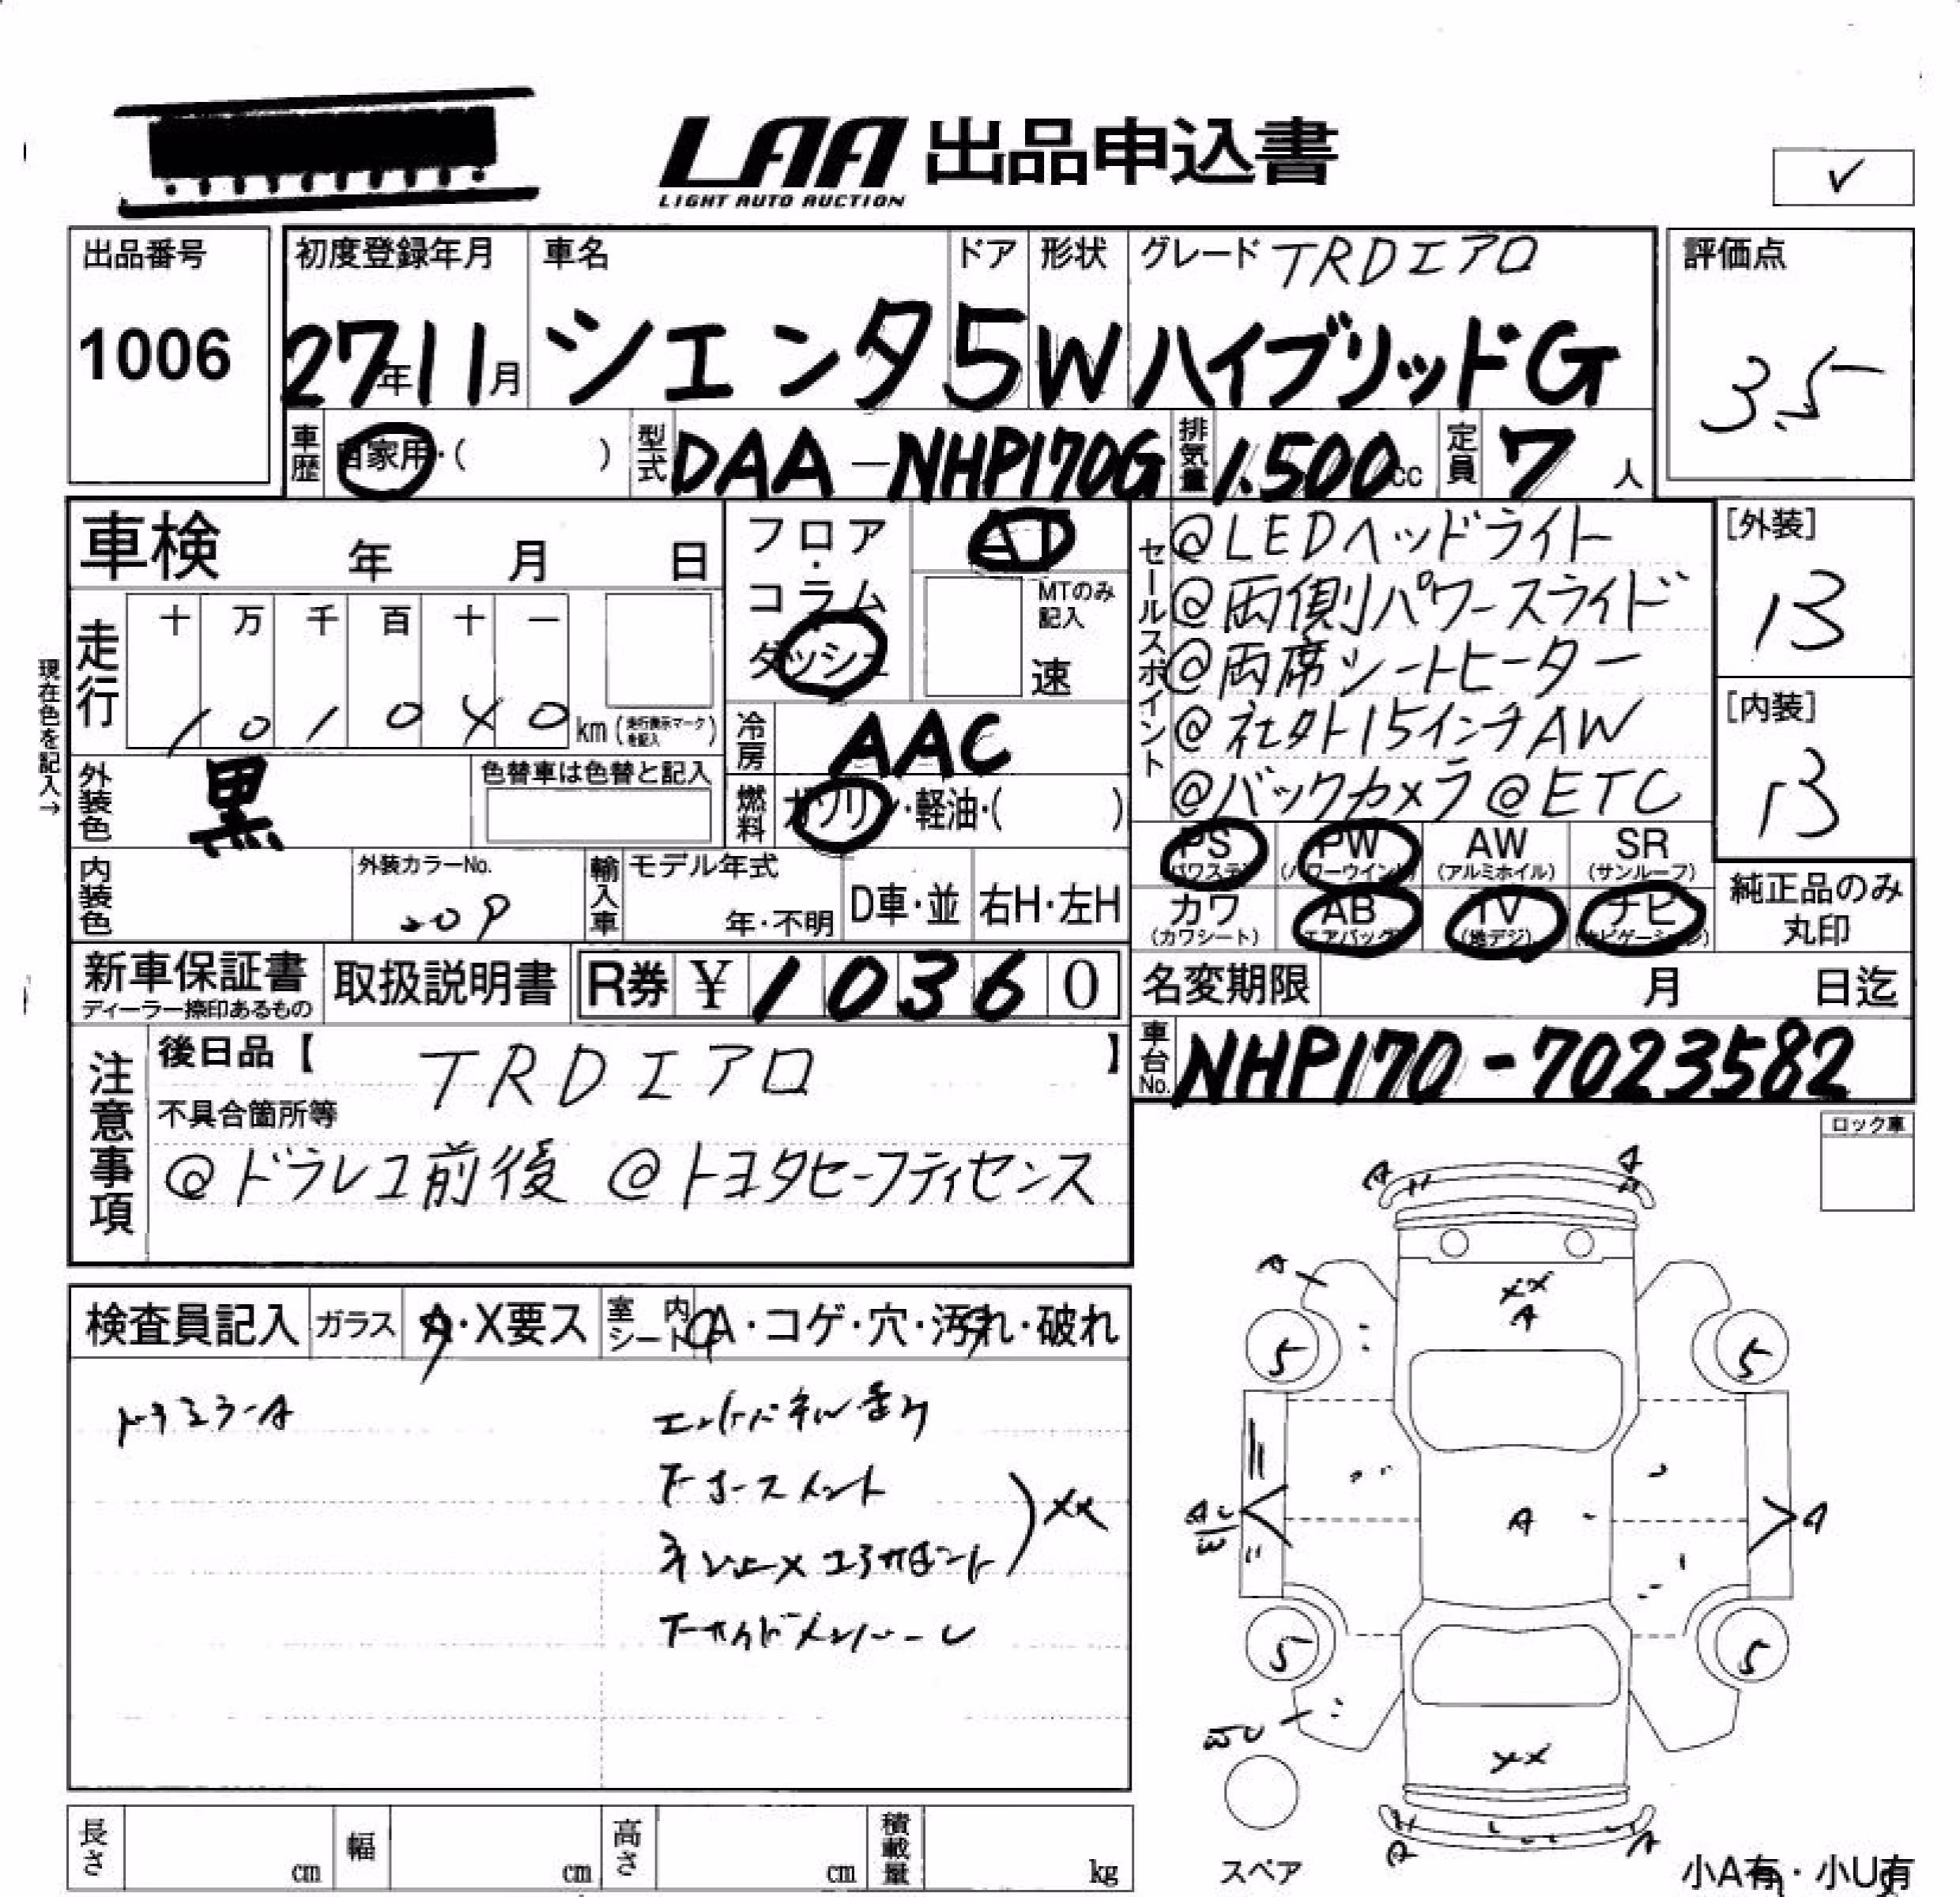 LAA 出品申込書
LIGHT AUTO AUCTION
✓
出品番号
1006
初度登録年月
27年11月
車名
シエンタ
ドア
5
形状
W
グレード TRDエアロ
ハイブリッドG
評価点
3.5
車歴 自家用・( )
型式 DAA-NHP170G
排気量 1.500cc
定員 7人
車検 年 月 日
フロア・コラム
ダッシュ
AT
MTのみ記入
速
セールスポイント
@LEDヘッドライト
@両側パワースライド
@両席シートヒーター
@社外15インチAW
@バックカメラ @ETC
[外装]
B
[内装]
B
現在色を記入→
走行
十 万 千 百 十 一
1 0 1 0 4 0 km (走行表示マークを記入)
冷房 AAC
外装色 黒
色替車は色替と記入
燃料 ガソリン・軽油・( )
PS (パワステ)
PW (パワーウインド)
AW (アルミホイル)
SR (サンルーフ)
内装色
外装カラーNo.
209
輸入車
モデル年式
年・不明
D車・並
右H・左H
カワ (カワシート)
AB (エアバッグ)
TV (地デジ)
ナビ (ナビゲーション)
純正品のみ
丸印
新車保証書
ディーラー捺印あるもの
取扱説明書
R券 ¥ 10360
名変期限 月 日迄
車台No. NHP170-7023582
注意事項
後日品【 TRDエアロ 】
不具合箇所等
@ドラレコ前後 @トヨタセーフティセンス
ロック車
検査員記入
ガラス A・X要ス
室内シート A・コゲ・穴・汚れ・破れ
ドアミラーA
XX
A
A
A
XX
A
5
5
A
A
5
5
XX
A
A
スペア
小A有・小U有
長さ cm
幅 cm
高さ cm
積載量 kg